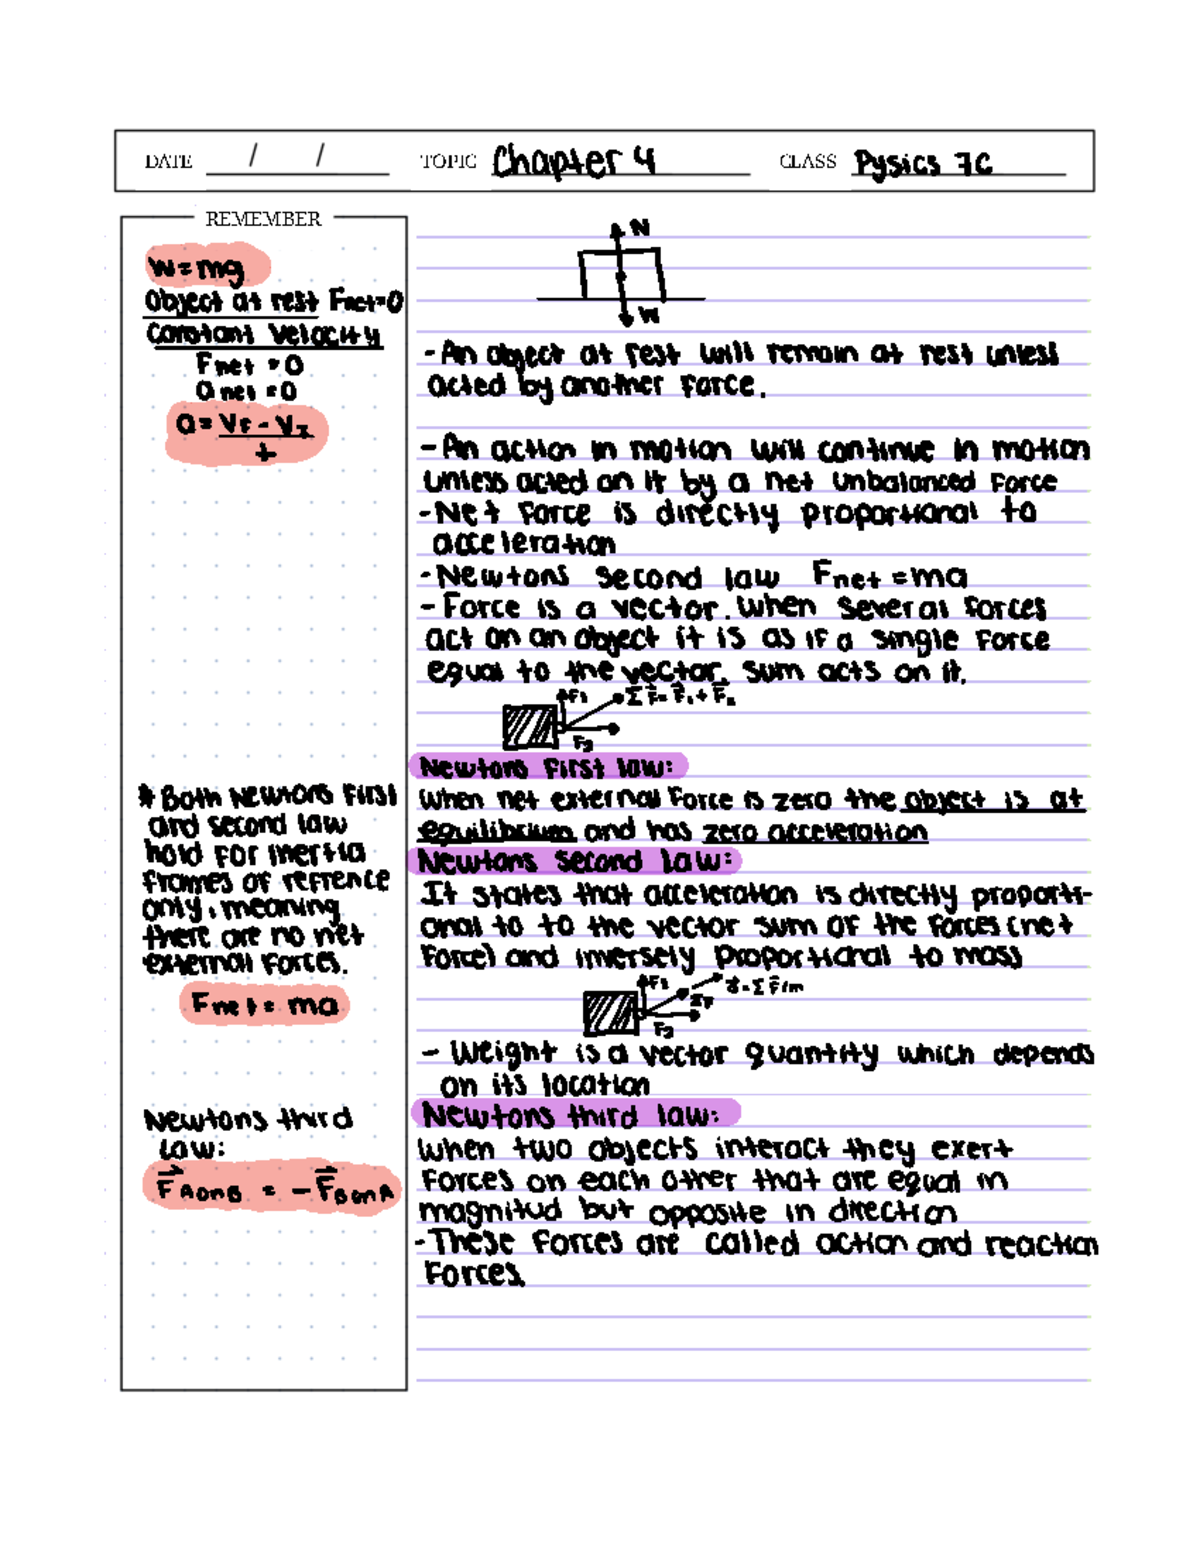 DATE / / TOPIC Chapter 4 CLASS Pysics 7C
REMEMBER
W=mg
Object at rest Fnet=0
Constant Velocity
Fnet =0
a net =0
a= VF - VI
t
* Both Newtons First
and second law
hold for inertia
frames of refrence
only, meaning
there are no net
external forces.
Fnet = ma
Newtons third
law:
F A on B = - F B on A
N
W
-An object at rest will remain at rest unless
acted by another force.
-An action in motion will continue in motion
unless acted on it by a net unbalanced force
-Net force is directly proportional to
acceleration
-Newtons second law Fnet =ma
- Force is a vector. When several forces
act on an object it is as if a single force
equal to the vector sum acts on it.
F1 ΣF= F1 + F2
F2
Newtons First law:
When net external force is zero the object is at
equilibrium and has zero acceleration
Newtons second law:
It states that acceleration is directly proporti-
onal to to the vector sum of the forces (net
force) and imersely proportional to mass
F1 ΣF a=ΣF/m
F2
- Weight is a vector quantity which depends
on its location
Newtons third law:
When two objects interact they exert
forces on each other that are equal in
magnitud but opposite in direction
-These forces are called action and reaction
forces.